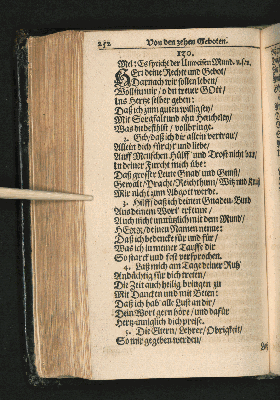 252 Von den zehen Geboten.
130.
Mel: Es spricht der Unweisen Mund. ꝛc.
HErr deine Rechte und Gebot/
Darnach wir sollen leben/
Wollst mir/ o du treuer GOtt/
Ins Hertze selber geben:
Daß ich zum guten willig sey/
Mit Sorgfalt und ohn Heucheley/
Was du befihlst/ vollbringe.
2. Gib/ daß ich dir allein vertrau/
Allein dich fürcht und liebe/
Auff Menschen Hülff und Trost nicht bau/
In deiner Furcht mich übe:
Daß grosser Leute Gnad und Gunst/
Gewalt/ Pracht/ Reichthum/ Witz und Kunst
Mir nicht zum Abgott werde.
3. Hilff/ daß ich deinen Gnaden-Bund
Aus deinem Wort erkenne/
Auch nicht unnützlich mit dem Mund/
HErr/ deinen Namen nenne:
Daß ich bedencke für und für/
Was ich in meiner Tauffe dir
So starck und fest versprochen.
4. Laß mich am Tage deiner Ruh/
Andächtig für dich treten/
Die Zeit auch heilig bringen zu
Mit Dancken und mit Beten:
Daß ich hab alle Lust an dir/
Dein Wort gern höre/ und dafür
Hertzinniglich dich preise.
5. Die Eltern/ Lehrer/ Obrigkeit/
So mir gegeben werden/